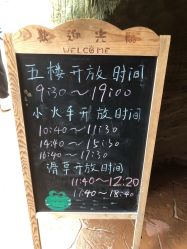 歡迎光臨
WELCOME
五楼开放时间
9:30~19:00
小火车开放时间
10:40~11:30
14:40~15:30
16:40~17:30
滑草开放时间
11:40~12:20
17:40~18:40